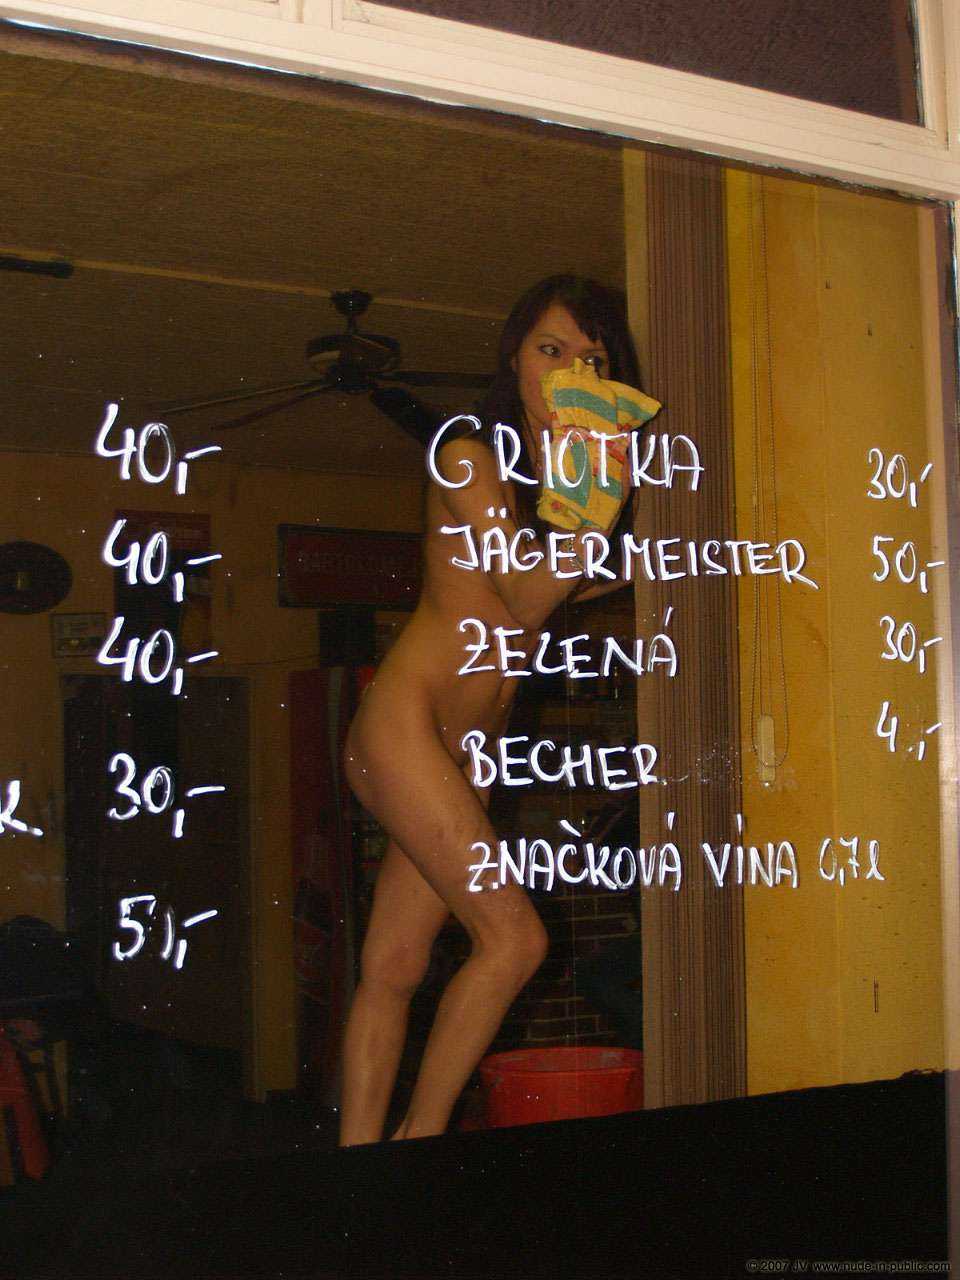 40,-
40,-
40,-
30,-
K.
GRIOTKA 30,-
JÄGERMEISTER 50,-
ZELENÁ 30,-
BECHER
ZNAČKOVÁ VÍNA 0,7l
© 2007 JV www.nude-in-public.com